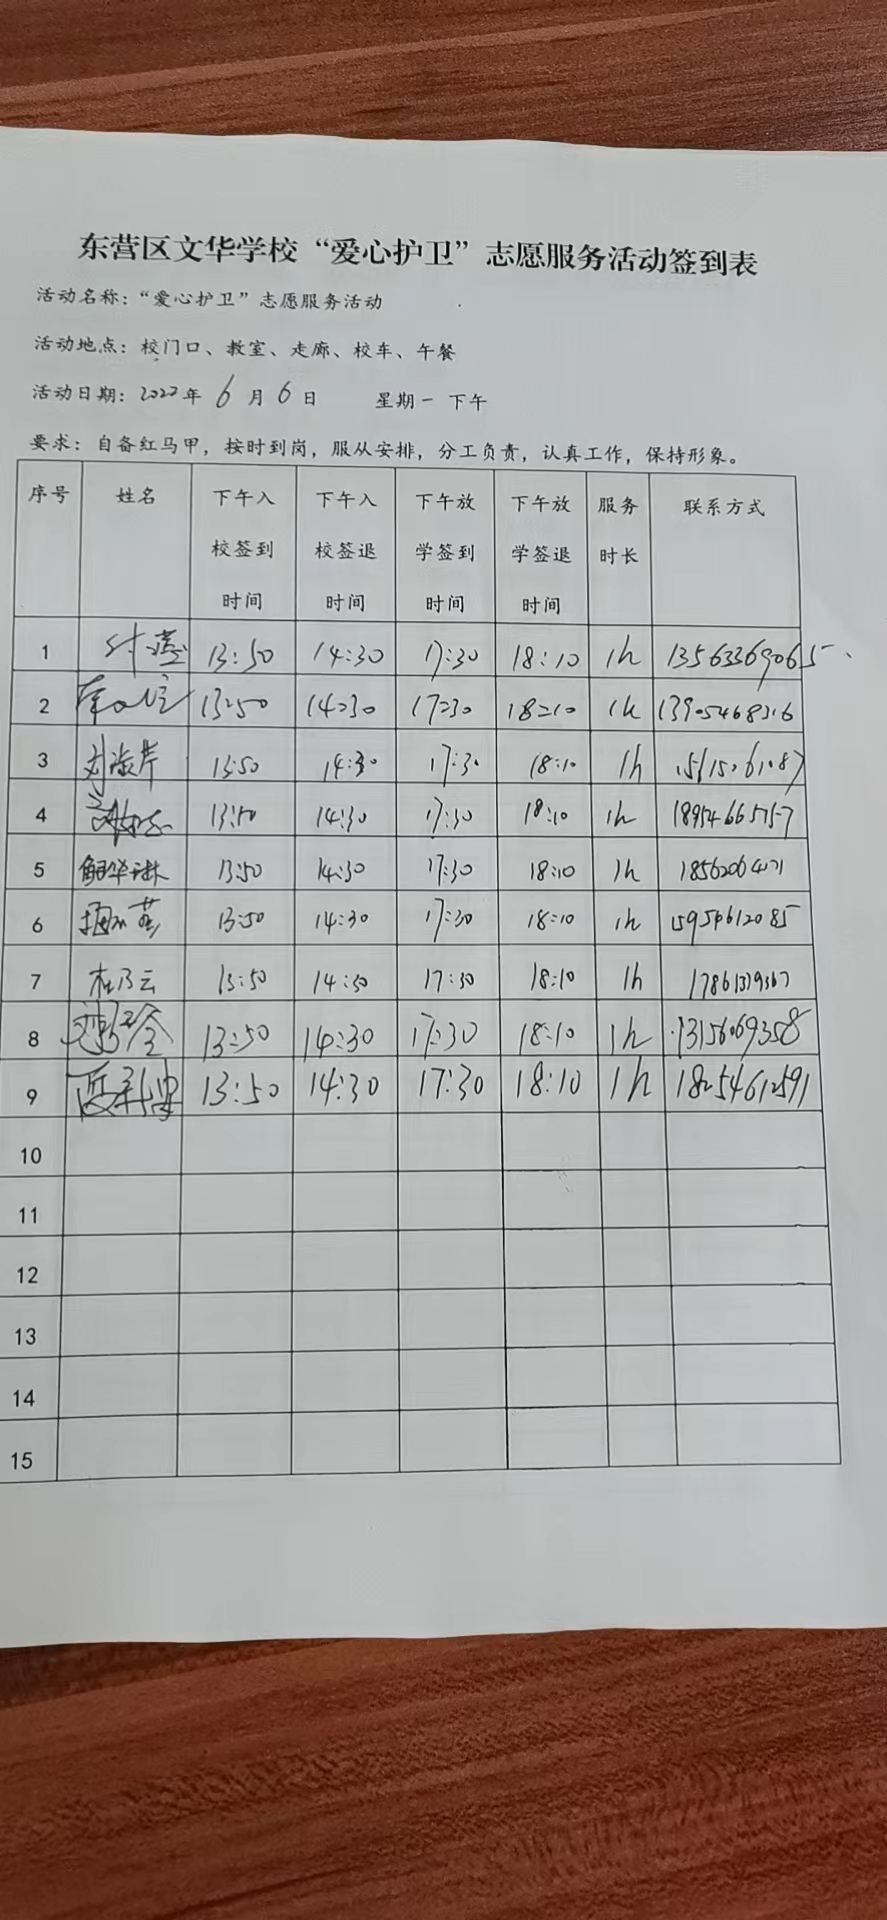 东营区文华学校“爱心护卫”志愿服务活动签到表
活动名称：“爱心护卫”志愿服务活动
活动地点：校门口、教室、走廊、校车、午餐
活动日期：2022年 6 月 6 日 星期一 下午
要求：自备红马甲，按时到岗，服从安排，分工负责，认真工作，保持形象。
序号 姓名 下午入校签到时间 下午入校签退时间 下午放学签到时间 下午放学签退时间 服务时长 联系方式
1 13:50 14:30 17:30 18:10 1h 13563369065
2 13:50 14:30 17:30 18:10 1h 13905468316
3 13:50 14:30 17:30 18:10 1h
4 13:50 14:30 17:30 18:10 1h 18954665757
5 13:50 14:30 17:30 18:10 1h
6 13:50 14:30 17:30 18:10 1h 15954612085
7 杜乃云 13:50 14:30 17:30 18:10 1h 17861379367
8 13:50 14:30 17:30 18:10 1h
9 13:50 14:30 17:30 18:10 1h 18254612591
10
11
12
13
14
15